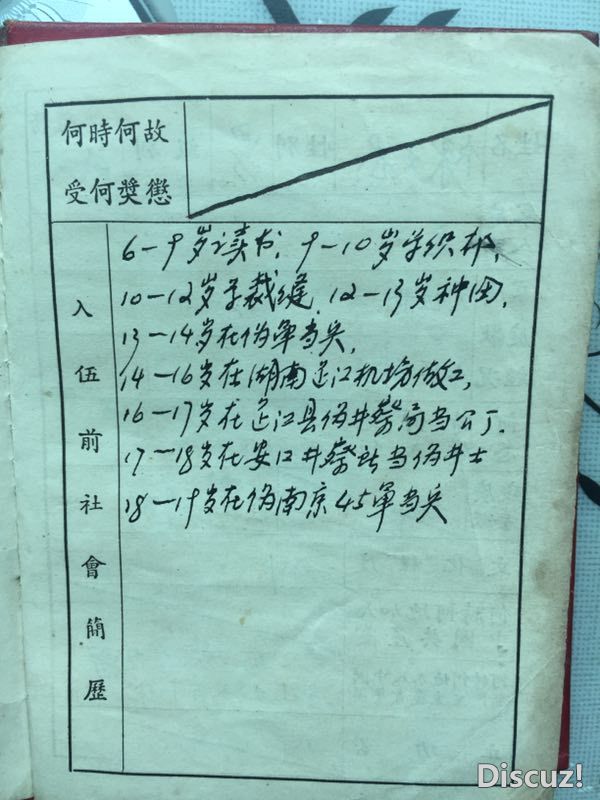 何時何故
受何獎懲
入伍前社會簡歷
6—9岁读书，9—10岁学织布，
10—12岁学裁缝，12—13岁种田，
13—14岁在伪軍当兵，
14—16岁在湖南芷江机场做工，
16—17岁在芷江县伪井察局当公丁.
17—18岁在安口井察站当伪井士
18—19岁在伪南京45軍当兵
Discuz!